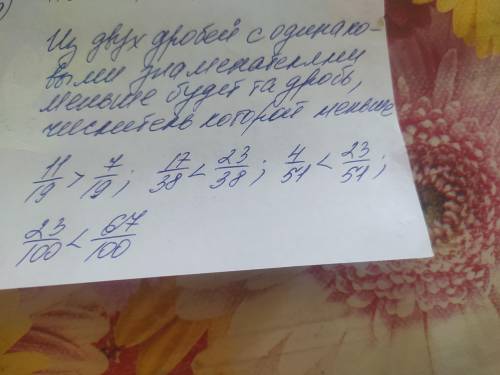 Из двух дробей с одинако-
выми знаменателями
меньше будет та дробь,
числитель которой меньше
11/19 > 7/19; 17/38 < 23/38; 4/51 < 23/51;
23/100 < 67/100